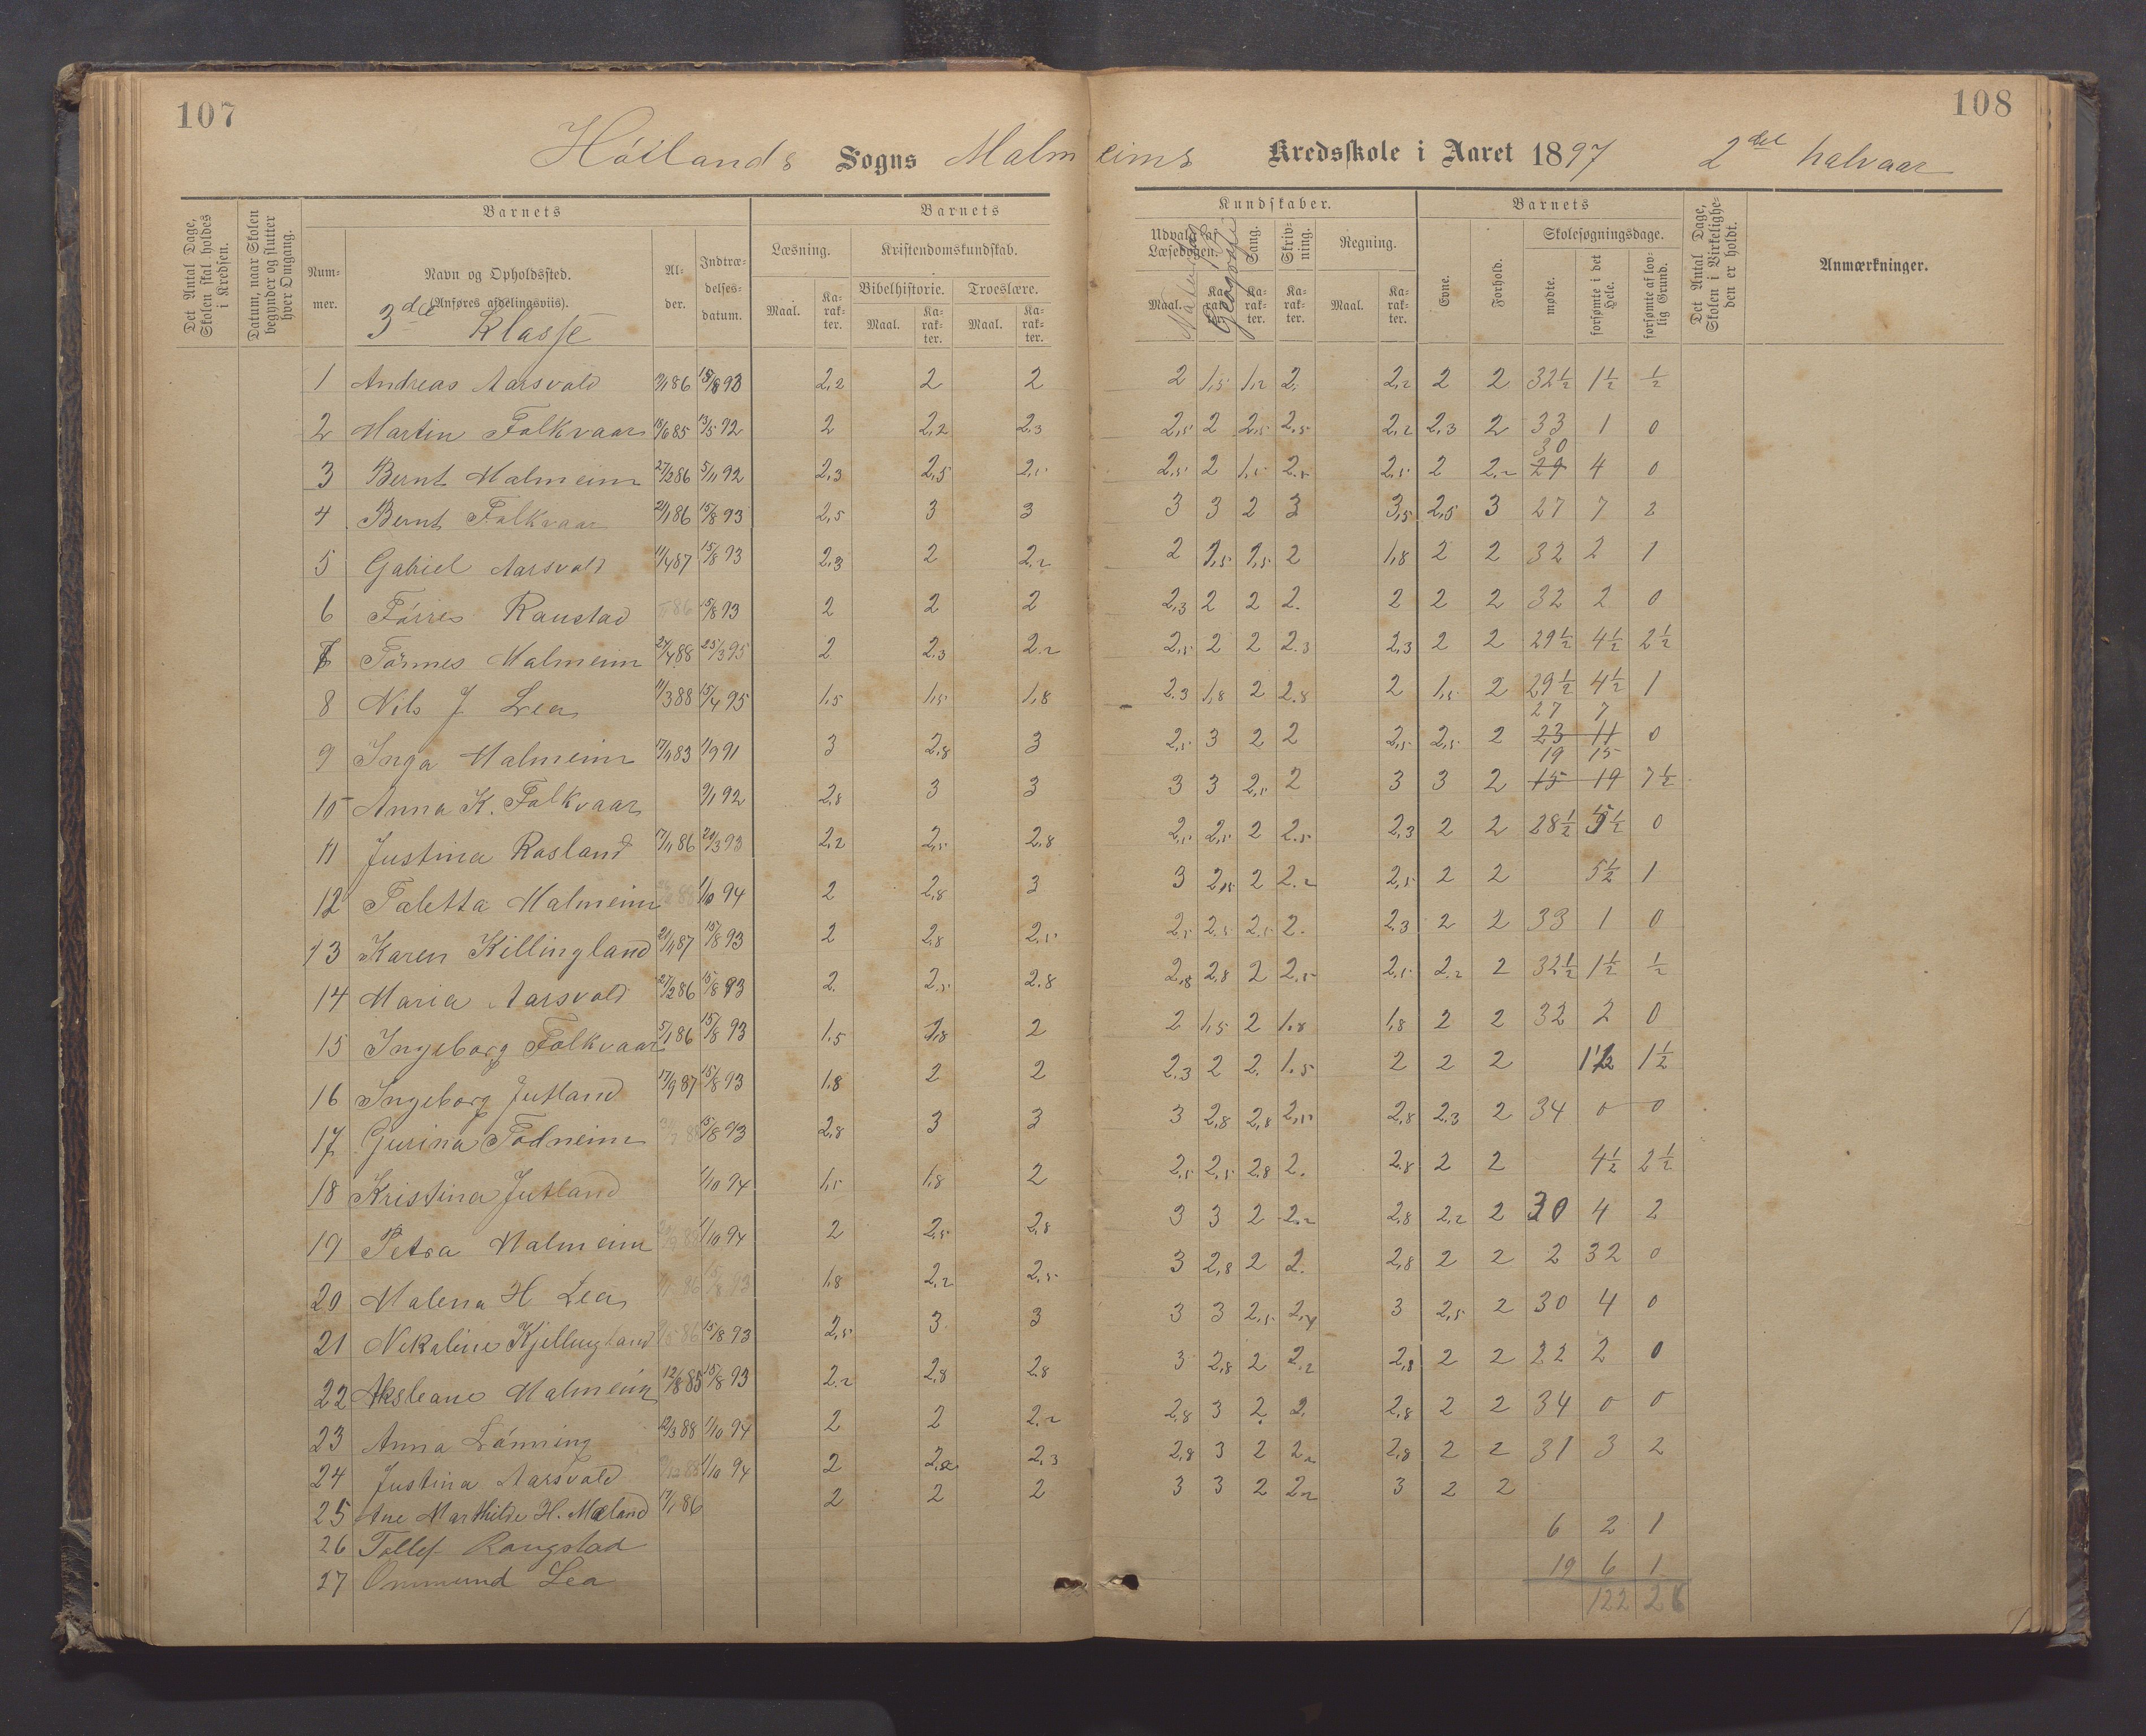 107
108
Höilands Sogns Malmeims Kredsskole i Aaret 1897 2det halvaar
Det Antal Dage, Skolen skal holdes i Kredsen.
Datum, naar Skolen begynder og slutter hver Omgang.
Barnets
Nummer.
Navn og Opholdssted. (Anføres afdelingsviis).
3die Klasse
Alder.
Indtrædelsesdatum.
Barnets Kundskaber.
Læsning.
Maal. Karakter.
Kristendomskundskab.
Bibelhistorie. Troeslære.
Maal. Karakter. Maal. Karakter.
Udvalg af Læsebogen.
Maal. Karakter.
Geografi
Sang.
Karakter.
Skrivning.
Karakter.
Regning.
Maal. Karakter.
Barnets
Evne.
Forhold.
Skolesøgningsdage.
mødte.
forsømte i det Hele.
forsømte af lovlig Grund.
Det Antal Dage, Skolen i Virkeligheden er holdt.
Anmærkninger.
1 Andreas Aarsvold 9/1 86 15/8 93 2,2 2 2 2 1,5 1,2 2. 2,2 2 2 32½ 1½ ½
2 Martin Folkvaar 18/6 85 13/5 92 2 2,2 2,3 2,5 2 2,5 2,5 2,2 2,3 2 33 1 0
3 Bernt Malmeim 27/2 86 5/11 92 2,3 2,5 2,5 2,5 2 1,5 2,5 2,5 2 2,2 30 4 0
4 Bernt Folkvaar 21/1 86 15/8 93 2,5 3 3 3 3 2 3 3,5 2,5 3 27 7 2
5 Gabriel Aarsvold 11/4 87 15/8 93 2,3 2 2,2 2 1,5 1,5 2 1,8 2 2 32 2 1
6 Törres Raustad 86 15/8 93 2 2 2 2,3 2 2 2. 2 2 2 32 2 0
7 Tönnes Malmeim 24/4 88 25/3 95 2 2,3 2,2 2,5 2 2 2.3 2,3 2 2 29½ 4½ 2½
8 Nils J Lea 11/3 88 15/4 95 1,5 1,5 1,8 2.3 1,8 2 2.8 2 1,5 2 29½ 4½ 1
9 Inga Malmeim 17/11 83 1/9 91 3 2,8 3 2,5 3 2 2 2,5 2,5 2 27 7 23 11 0
10 Anna K. Folkvaar 9/1 92 2,8 3 3 3 3 2,5 2 3 3 2 19 15 15 19 7½
11 Justina Rosland 17/11 86 21/3 93 2,2 2,5 2,8 2,5 2,5 2 2.5 2,3 2 2 28½ 5½ 0
12 Taletta Malmeim 88 1/10 94 2 2,8 3 3 2,5 2 2.2 2,5 2 2 5½ 1
13 Karen Killingland 21/11 87 15/8 93 2 2,8 2,5 2,5 2.5 2.5 2. 2.3 2 2 33 1 0
14 Maria Aarsvold 27/2 86 15/8 93 2. 2,5 2.8 2,8 2,8 2 2.5 2,5 2,2 2 32½ 1½ ½
15 Ingeborg Folkvaar 5/1 86 15/8 93 1.5 1,8 2 2 1,5 2 1.8 1,8 2 2 32 2 0
16 Ingeborg Jutland 17/9 87 15/8 93 1.8 2 2 2.3 2 2. 1.5 2 2 2 1½
17 Gurina Todneim 88 15/8 93 2,8 3 3 3 2,8 2,8 2,5 2,8 2.3 2 34 0 0
18 Kristina Jutland 1/10 94 1,5 1,8 2 2,5 2,5 2.8 2. 2.8 2 2 4½ 2½
19 Petra Malmeim 88 1/10 94 2 2,5 2,8 3 3 2 2,2 2,8 2,2 2 30 4 2
20 Malena H Lea 86 15/8 93 1,8 2,2 2,5 3 2,8 2 2. 2,8 2 2 2 32 0
21 Nikaline Kjellingland 86 15/8 93 2,5 3 3 3 3 2,5 3 2,5 2 30 4 0
22 Aksleane Malmeim 12/8 85 15/8 93 2.2 2,8 2.8 3 2,8 2 2,2 2,8 2 2 22 2 0
23 Anna Lönning 12/3 88 1/10 94 2 2 2.2 2,8 3 2. 2. 2,8 2 2 34 0 0
24 Justina Aarsvold 88 1/10 94 2 2,3 2,8 3 2 2,8 2 2 31 3 2
25 Ane Marthilde H. Mæland 17/1 86 2 2 2 3 3 2 3 2 2
26 Tollef Rangstad 6 2 1
27 Ommund Lea 19 6 1
122